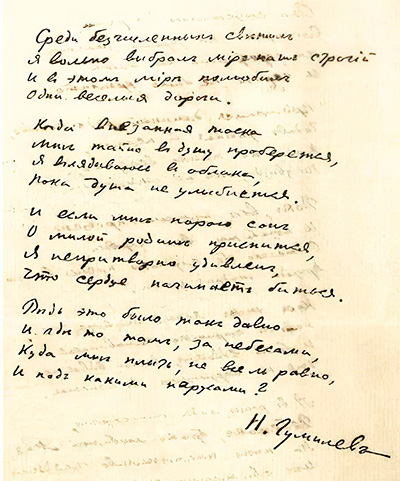 Среди безчисленныхъ свѣтилъ
Я вольно выбралъ мiръ нашъ строгiй
И въ этомъ мiрѣ полюбилъ
Одни веселыя дороги.
Когда внезапная тоска
Мнѣ тайно въ душу проберется,
Я вглядываюсь въ облака,
Пока душа не улыбнется.
И если мнѣ порою сонъ
О милой родинѣ приснится,
Я непритворно удивленъ,
Что сердце начинаетъ биться.
Вѣдь это было такъ давно
И гдѣ то тамъ, за небесами,
Куда мнѣ плыть, не все ль равно,
И подъ какими парусами?
Н. Гумилевъ